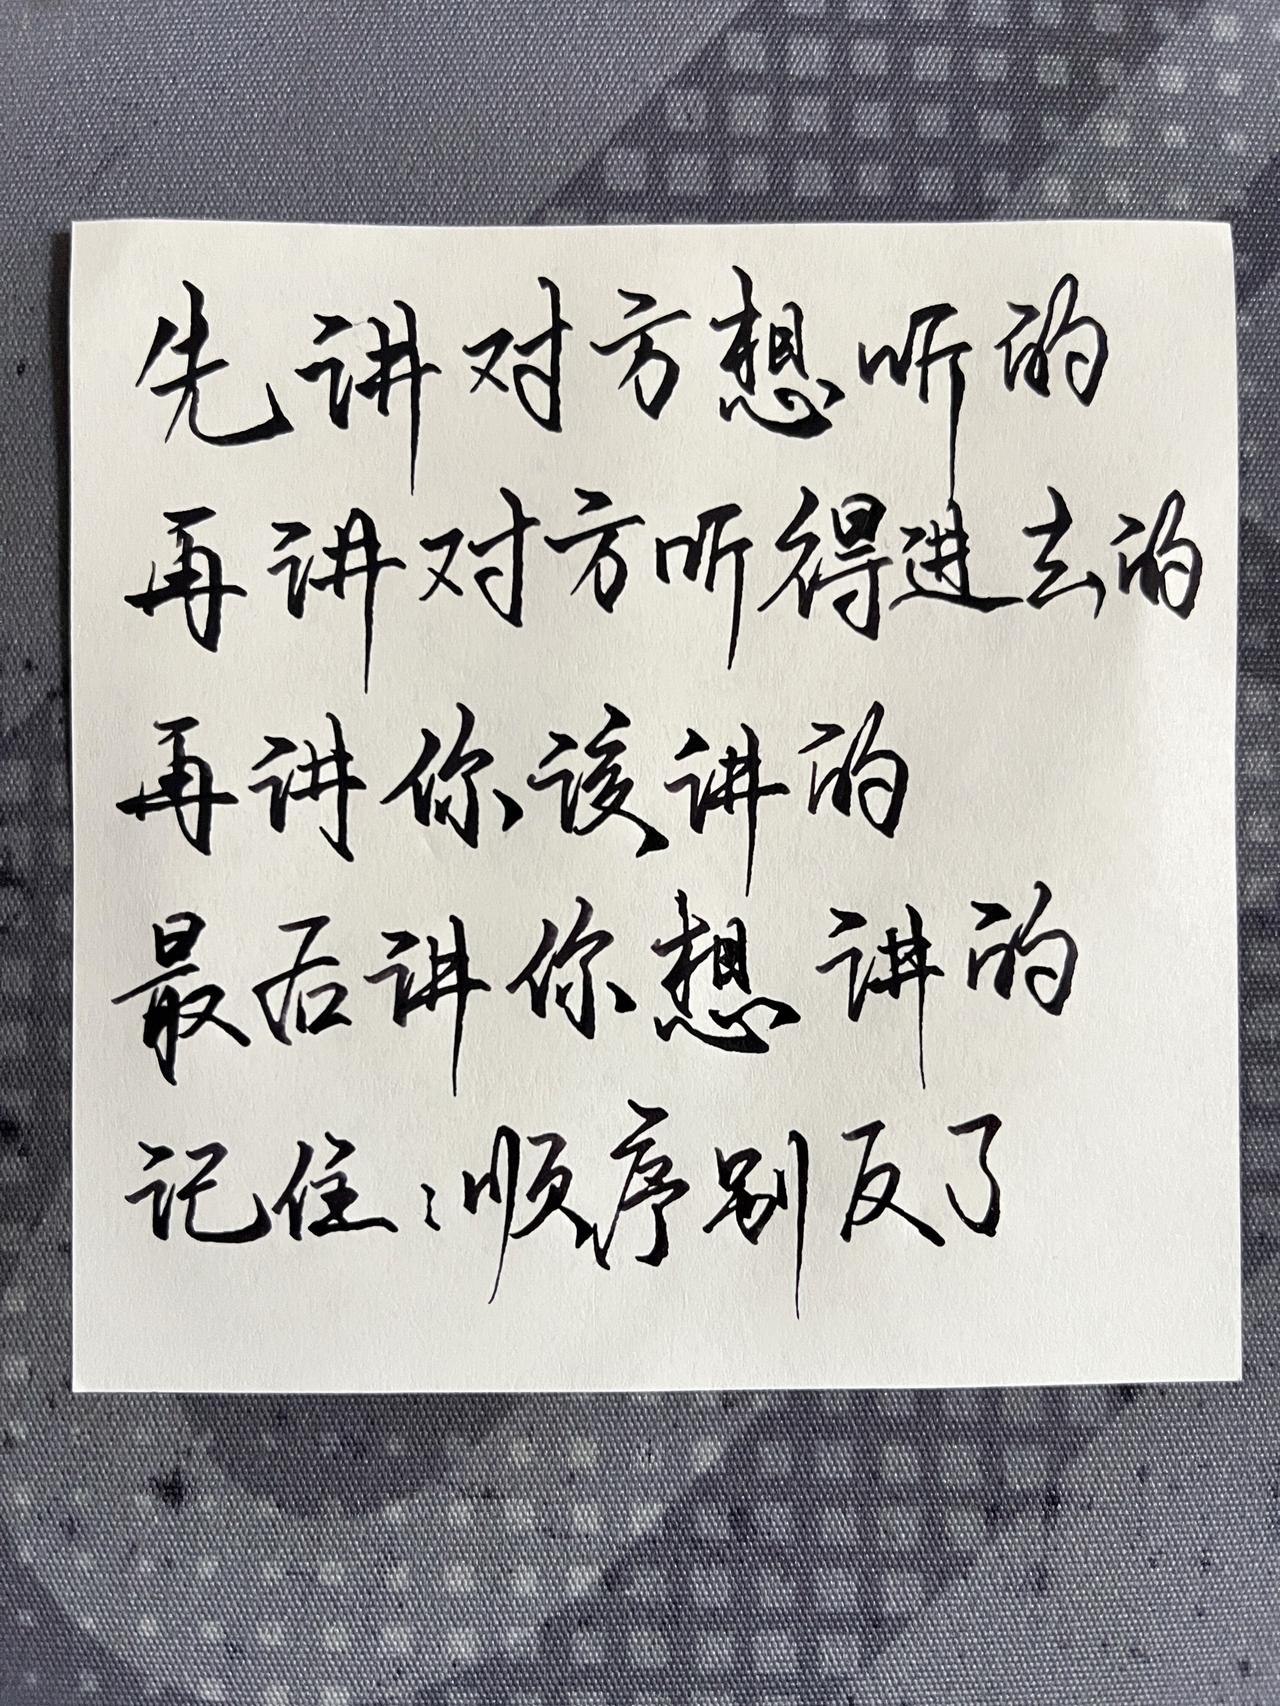 先讲对方想听的
再讲对方听得进去的
再讲你该讲的
最后讲你想讲的
记住：顺序别反了